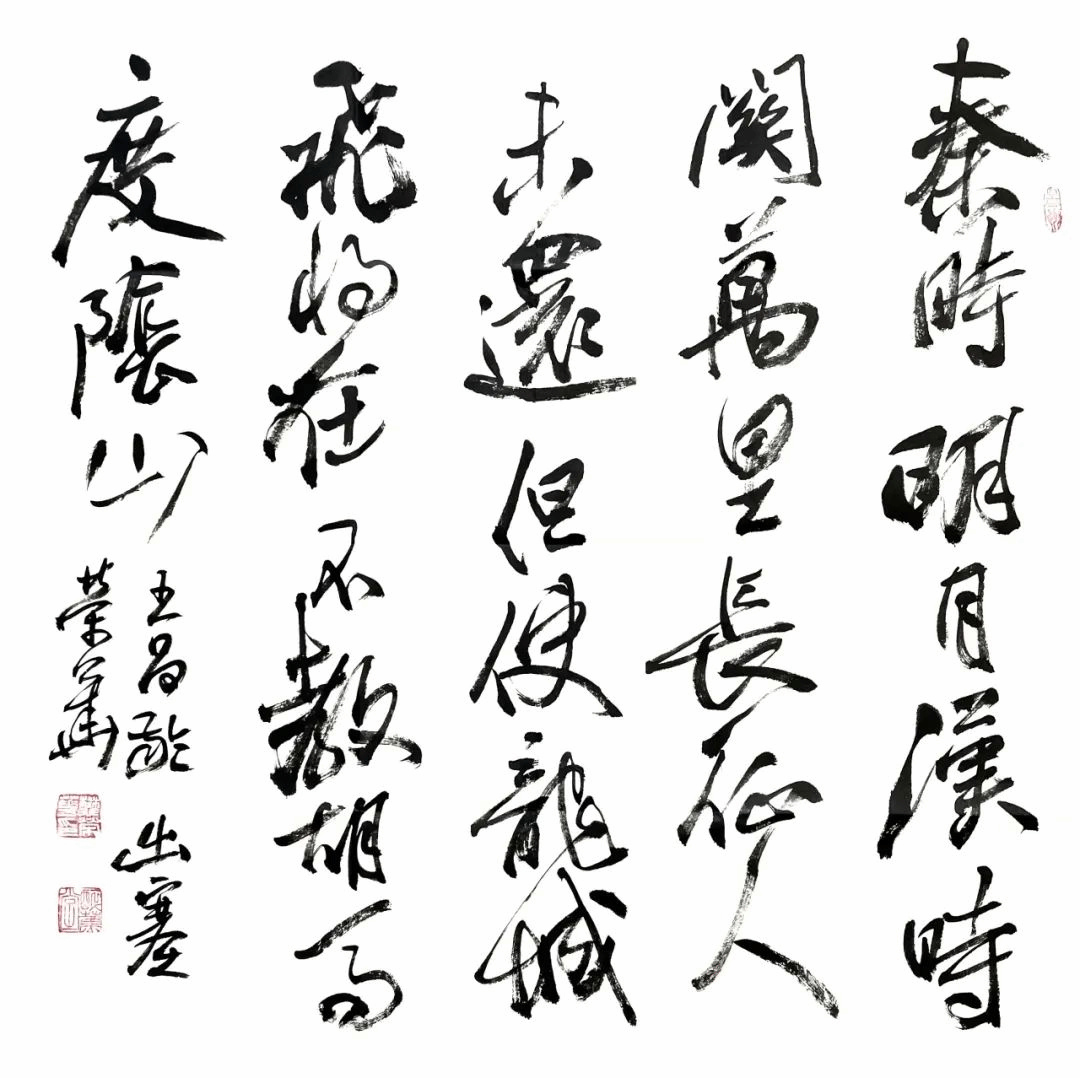 秦時明月漢時
關萬里長征人
未還但使龍城
飛將在不教胡馬
度陰山
王昌齡 出塞
荣